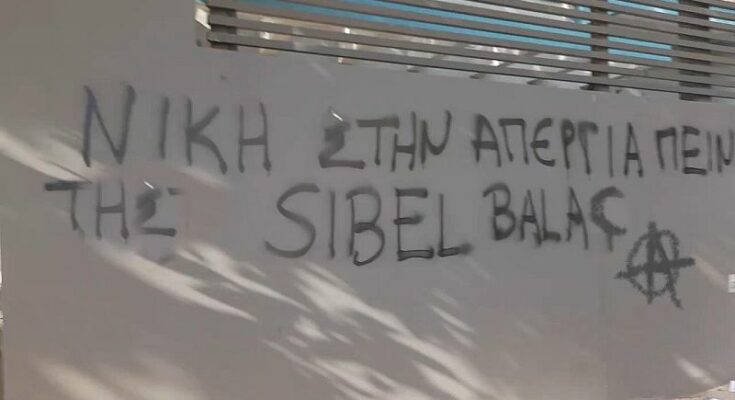 ΝΙΚΗ ΣΤΗΝ ΑΠΕΡΓΙΑ ΠΕΙΝ
ΤΗΣ SIBEL BALAÇ